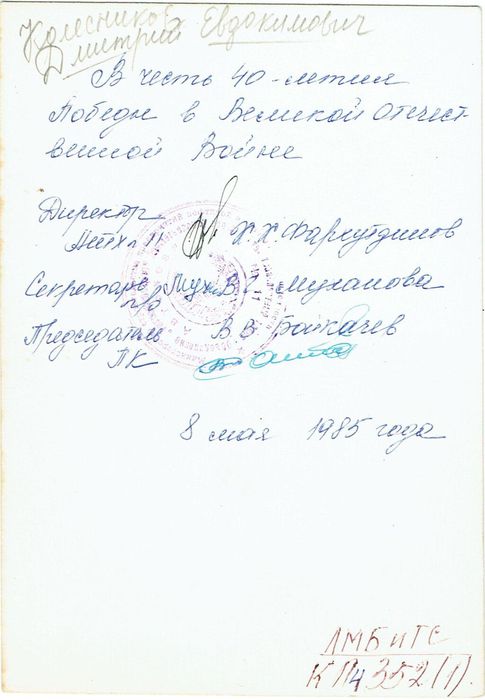 Колесников
Дмитрий Евдокимович
В честь 40-летия
Победы в Великой Отечест-
венной Войне
Директор
Х.Х. Фархутдинов
Секретарь В. Муханова
п/о
Председатель В.В. Бойкачев
ПК
8 мая 1985 года
ЛМБ и ТС
КП 4352 (1).